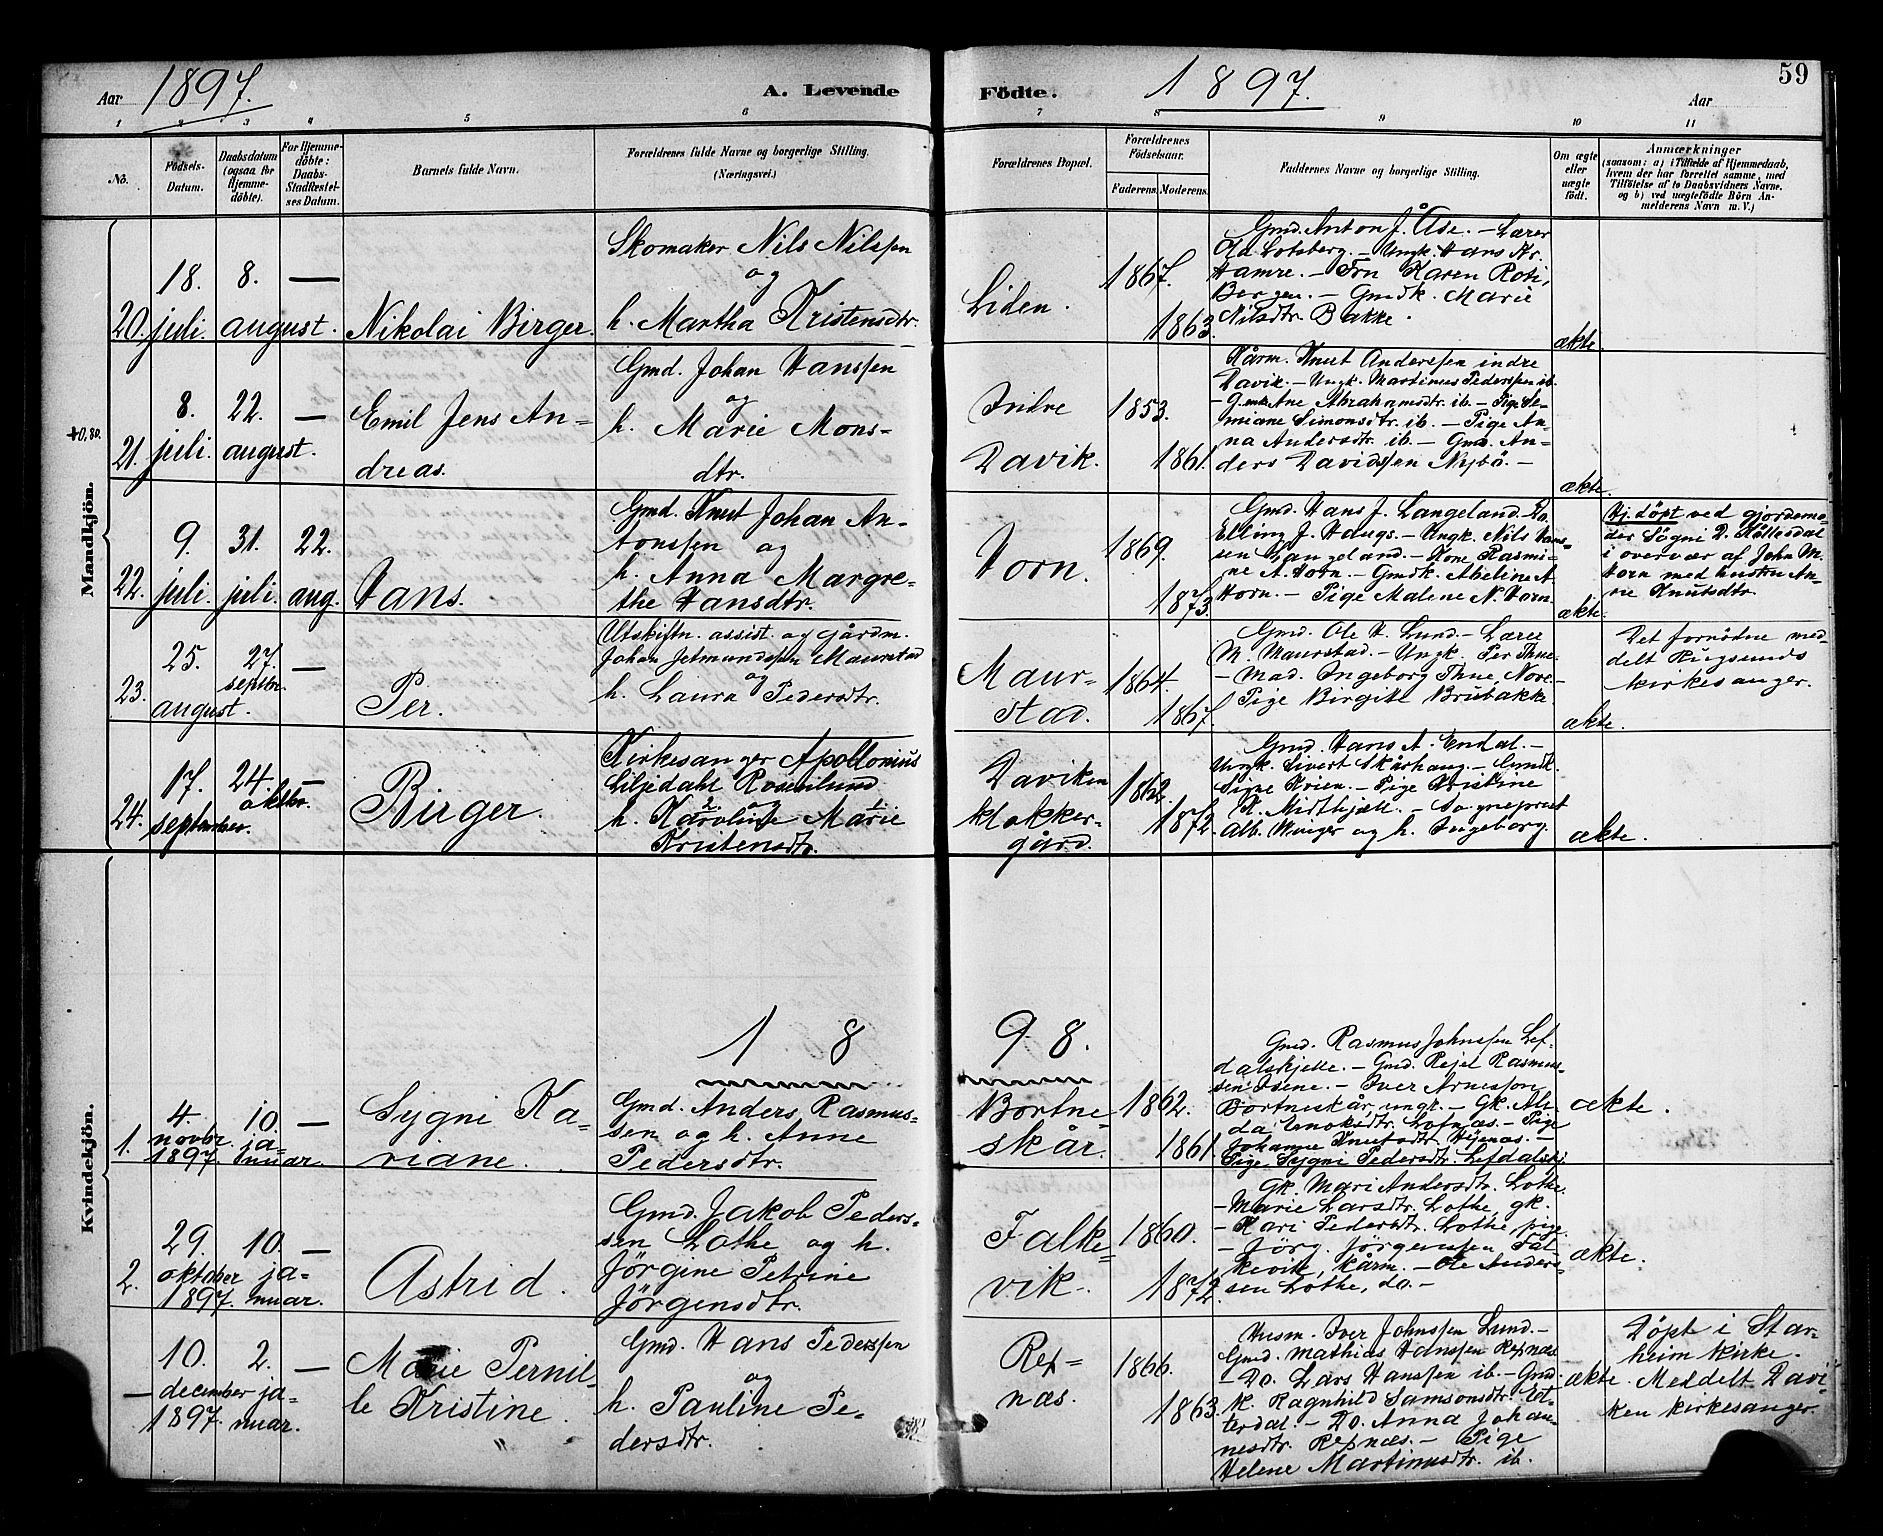 Aar 1897. A. Levende Födte. 1897. Aar 59
1 2 3 4 5 6 7 8 9 10 11
No.
Födsels-
Datum.
Daabsdatum
(ogsaa for
Hjemme-
döbte).
For Hjemme-
döbte:
Daabs-
Stadfæstel-
ses Datum.
Barnets fulde Navn.
Forældrenes fulde Navne og borgerlige Stilling.
(Næringsvei.)
Forældrenes Bopæl.
Forældrenes
Födselsaar.
Faderens. Moderens.
Faddernes Navne og borgerlige Stilling.
Om ægte
eller
uægte
födt.
Anmærkninger
(saasom: a) i Tilfælde af Hjemmedaab,
hvem der har forrettet samme, med
Tilföielse af to Daabsvidners Navne,
og b) ved uægtefödte Börn An-
melderens Navn m. V.)
Mandkjön.
20. 18. juli. 8. august. —
Nikolai Birger.
Skomaker Nils Nilssen
og
h. Martha Kristensdtr.
Liden.
1867. 1863.
Gmd. Anton J. Åse. – Lærer
Ola Lotsberg. – Ungk. Hans Kr.
Hamre. – Frn Karen Roti,
Bergen. – Gmdk. Marie
Nilsdtr. Bakke.
ækte.
21. 8. juli. 22. august. —
Emil Jens An-
dreas.
Gmd. Johan Hanssen
og
h. Marie Mons-
dtr.
Indre
Davik.
1853. 1861.
Kårm. Knut Anderssen indre
Davik. – Ungk. Martinus Pederssen ib.
– Gmk Ane Abrahamsdtr. ib. – Pige Se-
miane Simonsdtr. ib. – Pige An-
na Andersdtr. ib. – Gmd. An-
ders Davidssen Nybö. –
ækte.
22. 9. juli. 31. juli. 22. aug.
Hans.
Gmd. Knut Johan An-
tonssen og
h. Anna Margre-
the Hansdtr.
Horn.
1869. 1873.
Gmd. Hans J. Langeland. Do.
Elling J. Haugs. – Ungk. Nils Hans-
sen Langeland. – Kone Rasmi-
ne A. Horn. – Gmdk. Abeline A.
Horn. – Pige Malene N. Horn.
ækte.
Hj. döpt ved gjordemo-
der Sögni D.
i overvær af John M.
Horn med hustru An-
ne Knutsdtr.
23. 25. august. 27. septbr. —
Per.
Utskiftn. assist. og gårdm.
Johan Jetmundssen Maurstad
og
h. Laura Pedersdtr.
Maur-
stad.
1864. 1867.
Gmd. Ole H. Lund. – Lærer
M. Maurstad. – Ungk. Per Thue
– Mad. Ingeborg Thue, Nore. –
Pige Birgitte Brubakke.
ækte.
Det fornödne med-
delt Rugsunds
kirkesanger.
24. 17. september. 24. oktbr. —
Birger.
Kirkesanger Apollonius
Liljedahl Rosenlund
og
h. Karoline Marie
Kristensdtr.
Daviken
klokker-
gård.
1862. 1872.
Gmd. Hans A. Endal. –
Ungk. Sivert Skårhaug. – Gmdk.
Signe Hoien. – Pige Kristine
K. Midthjell. – Sogneprest
Alb. Unger og h. Ingeborg.
ækte.
Kvindekjön.
1 8 9 8.
1. 4. novbr. 1897. 10. ja-nuar. —
Sygni Ka-
riane.
Gmd. Anders Rasmus-
sen og h. Anne
Pedersdtr.
Bortne-
skår.
1862. 1861.
Gmd. Rasmus Johnssen Lef-
dalskjelle. – Gmd. Rejel Rasmus-
sen Isene. – Iver Arnesson
Bortneskår, ungk. – Gk. Ali-
da Enoksdtr. Lofnæs. – Pige
Johanne Knutsdtr. Hÿenæs. –
Pige Sygni Pedersdtr. Lefdalskj.
ækte.
2. 29. oktober 1897. 10. ja-nuar. —
Astrid.
Gmd. Jakob Peders-
sen Lothe og h.
Jörgine Petrine
Jörgensdtr.
Falke-
vik.
1860. 1872.
Gk. Mari Andersdtr. Lothe.
– Marie Larsdtr. Lothe, gk.
– Kari Pedersdtr. Lothe, pige
– Jörg. Jörgenssen Fal-
kevik, kårm. – Ole Anders-
sen Lothe, do. –
ækte.
— 10. december 1897. 2. ja-nuar. —
Marie Pernil-
le Kristine.
Gmd. Hans Pederssen
og
h. Pauline Pe-
dersdtr.
Rep-
næs.
1866. 1863.
Husm. Iver Johnssen Lund. –
Gmd. Mathias Hanssen Repnæs
– Do. Lars Hanssen ib. – Gmd.
K. Ragnhild Samsonsdtr. Lot-
terdal. – Do. Anna Johan-
nesdtr. Repnæs. – Pige
Helene Martinusdtr. ib.
ækte.
Döpt i Star-
heim kirke.
Meddelt Davi-
ken kirkesanger.